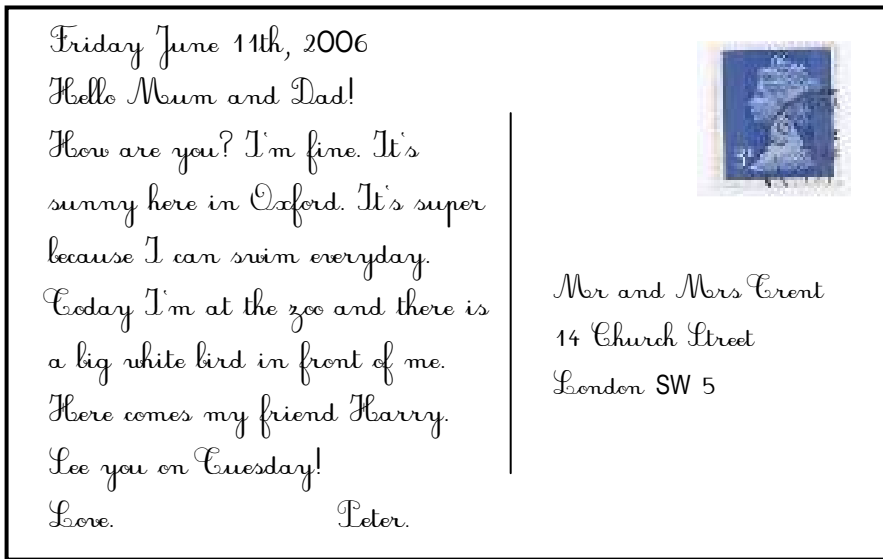 Friday June 11th, 2006
Hello Mum and Dad!
How are you? I'm fine. It's
sunny here in Oxford. It's super
because I can swim everyday.
Today I'm at the zoo and there is
a big white bird in front of me.
Here comes my friend Harry.
See you on Tuesday!
Love. Peter.
Mr and Mrs Trent
14 Church Street
London SW 5